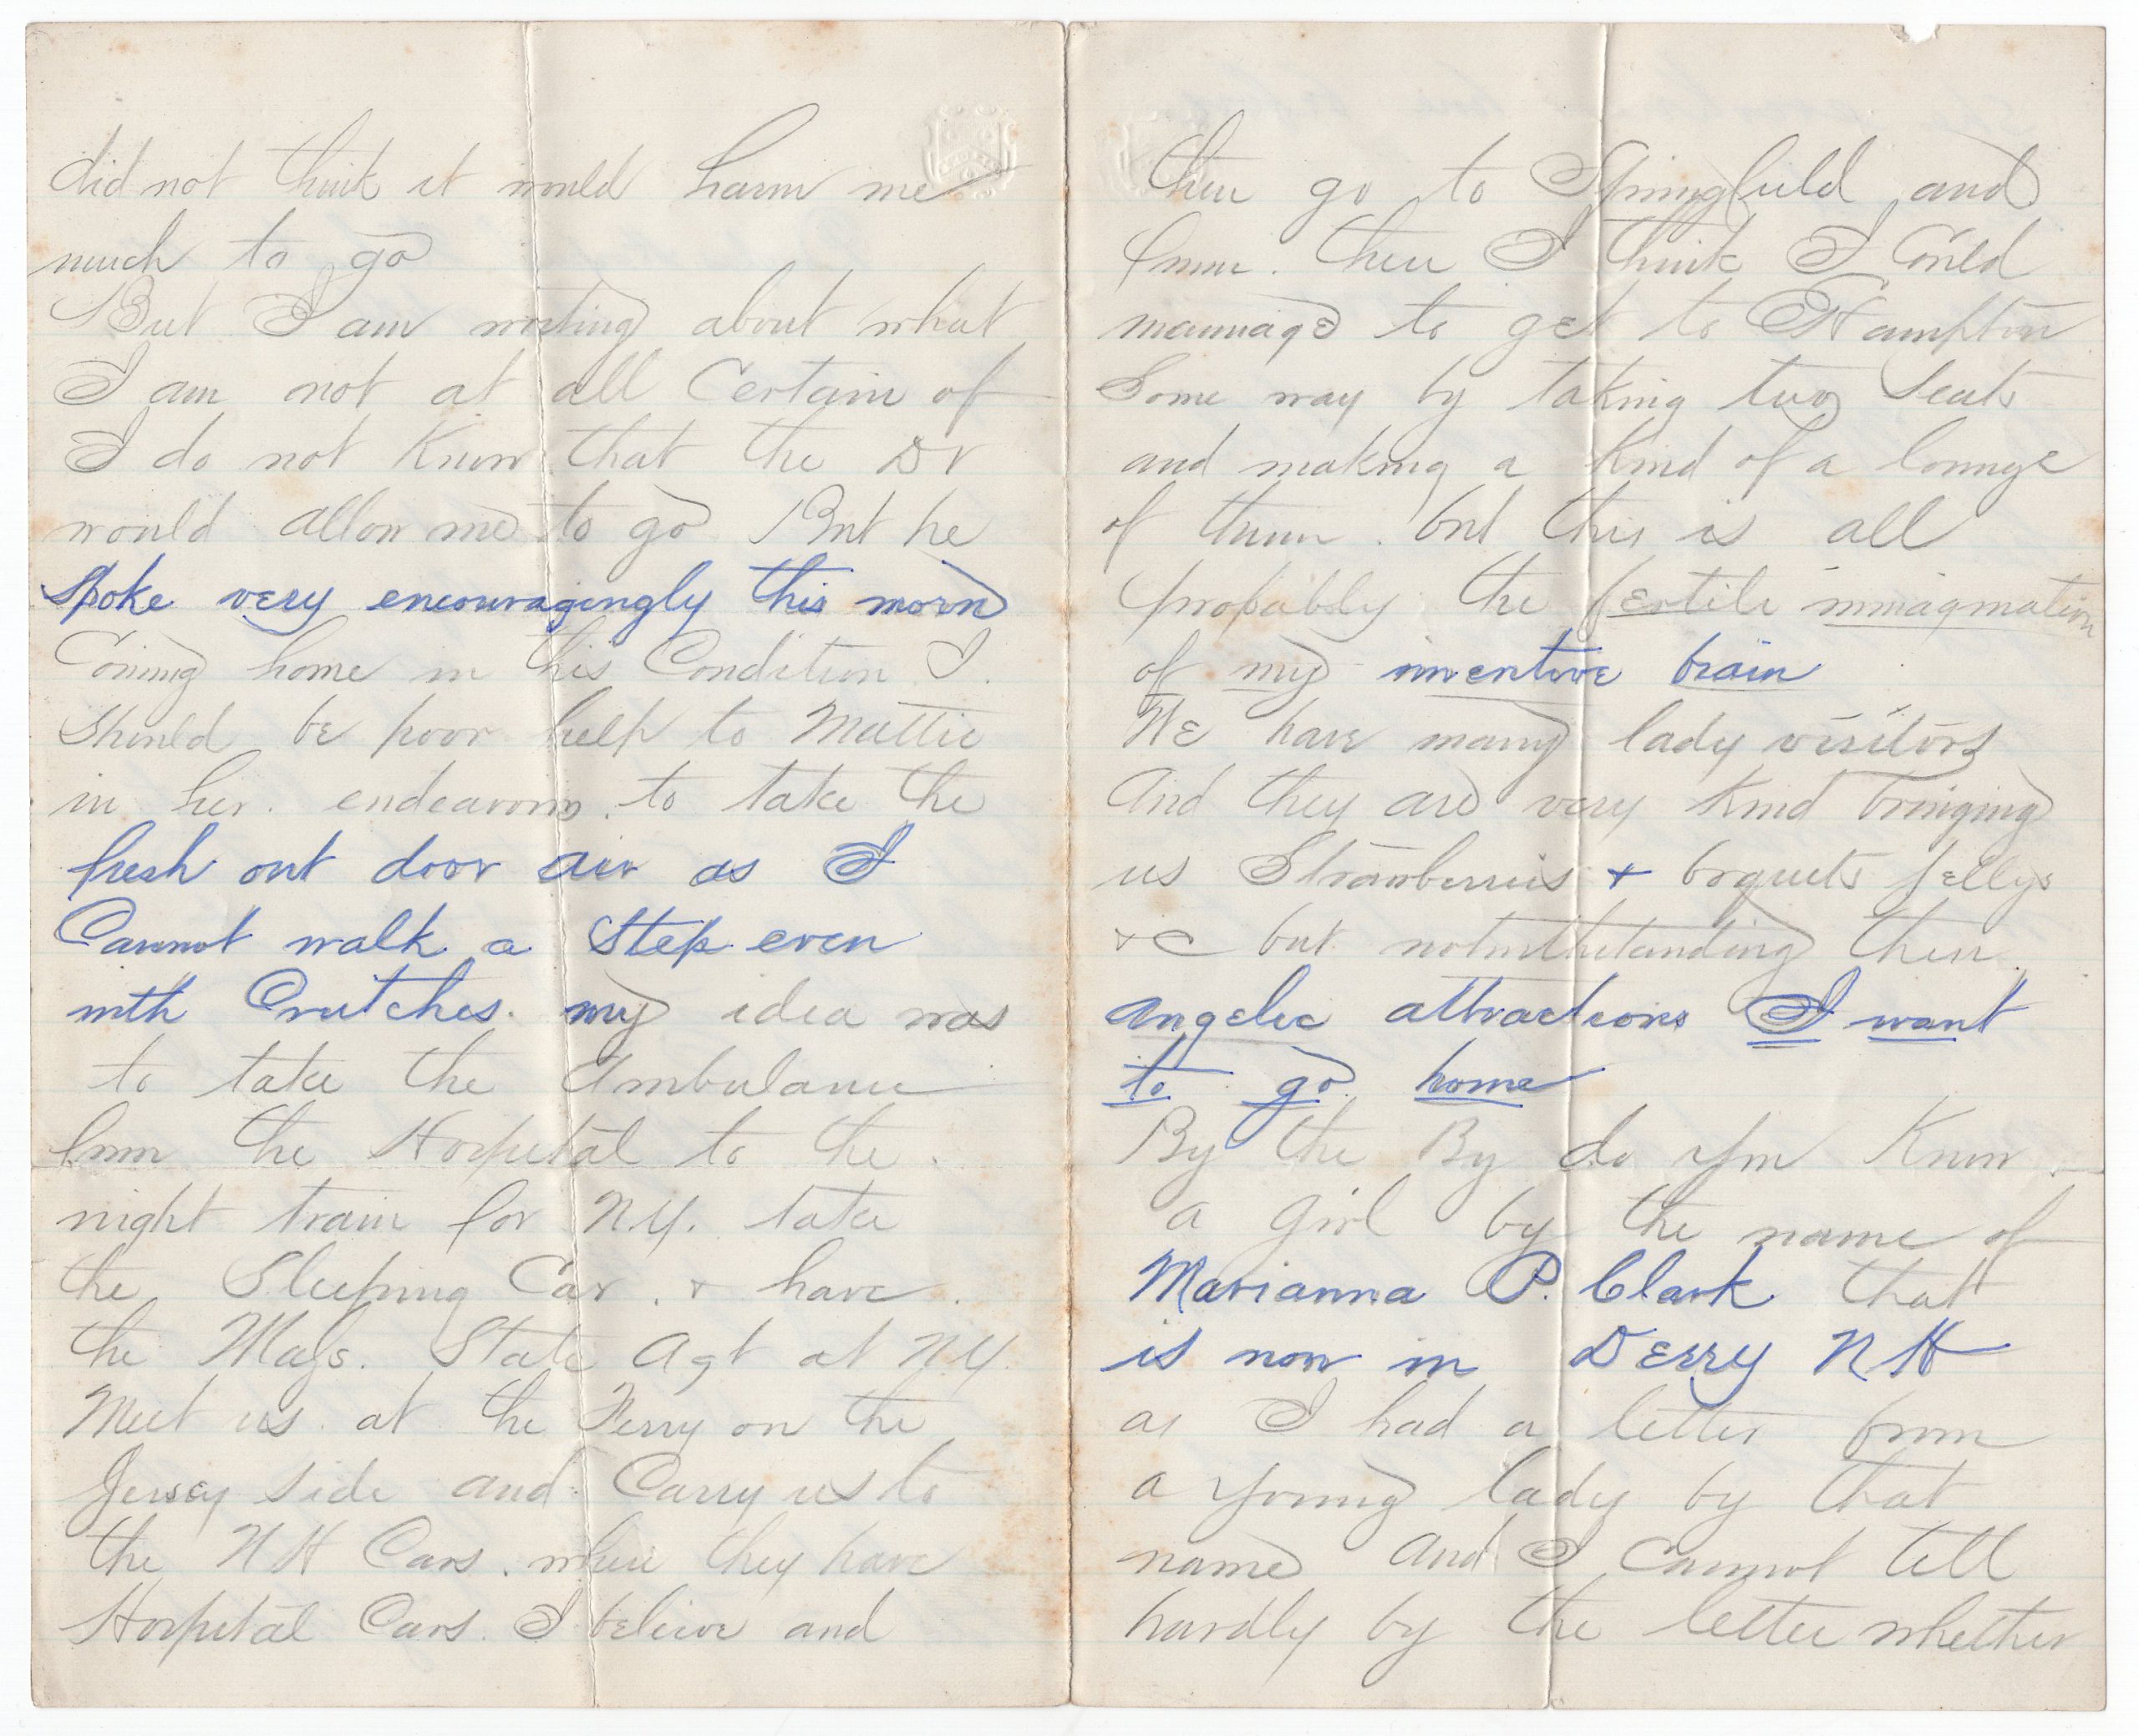 did not think it would harm me
much to go
But I am writing about what
I am not at all Certain of
I do not Know that the Dr
would allow me to go But he
spoke very encouragingly this morn
Coming home in this Condition I.
Should be poor help to Mattie
in her. endeavors. to take the
fresh out door air as I
Cannot walk a Step even
with Crutches. my idea was
to take the Ambulance
from the Hospital to the.
night train for N.Y. take
the Sleeping Car. & have.
the Mass. State Agt at N.Y.
Meet us at the Ferry on the
Jersey side and Carry us to
the N H Cars. where they have
Hospital Cars. I believe and
then go to Springfield and
from. there I think I Could
mannage to get to Hampton
Some way by taking two Seats
and making a Kind of a lounge
of them. but this is all
probably the fertile immagination
of my inventive brain
We have many lady visitors
And they are very Kind bringing
us Strawberries & boquets Jellys
&c but notwithstanding their
angelic attractions I want
to go home
By the By do you Know
a girl by the name of
Marianna P. Clark that
is now in Derry N H
as I had a letter from
a young lady by that
name and I cannot tell
hardly by the letter whether